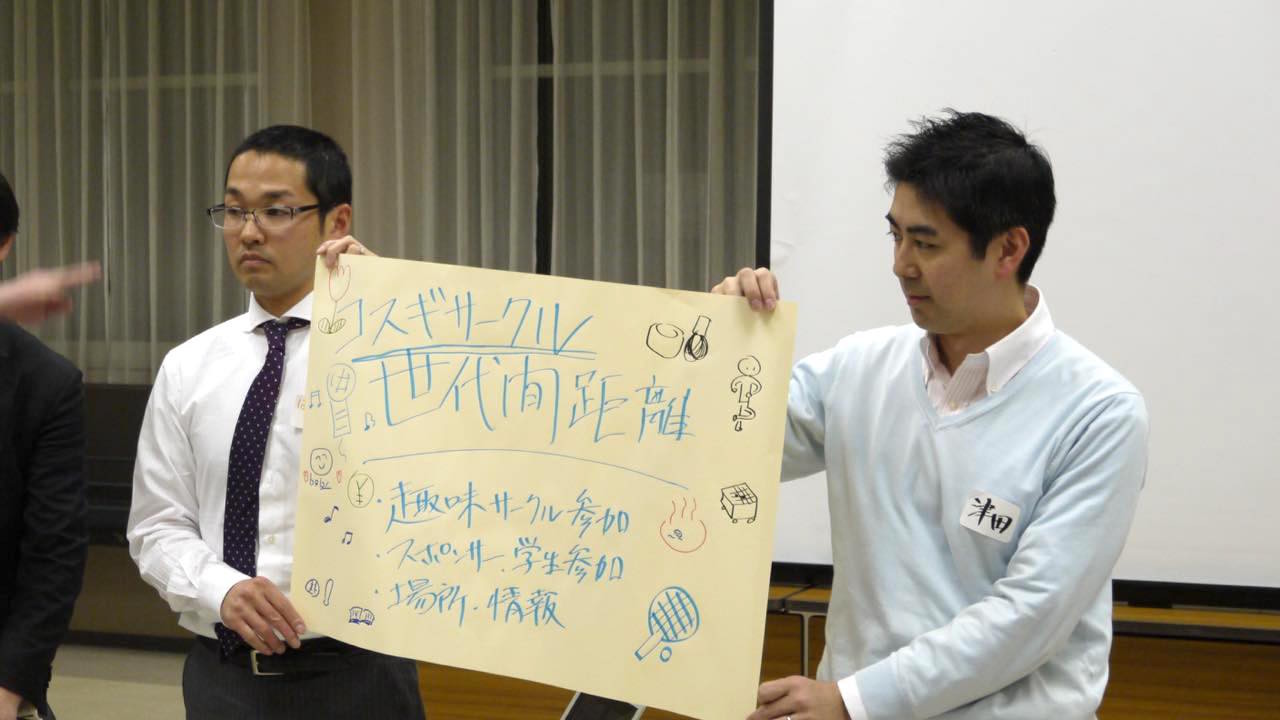 コスギサークル
世代間距離
・趣味サークル参加
・スポンサー、学生参加
・場所・情報
¥
baby
津田